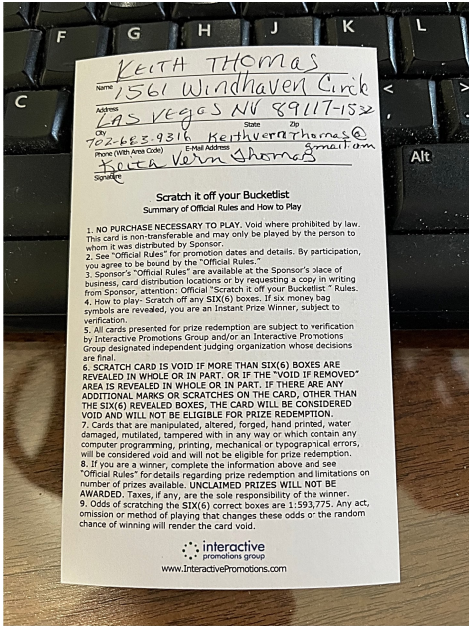 F G H J K L
C
Alt
<
KEITH THOMAS
Name
1561 Windhaven Circle
Address
LAS Vegas NV 89117-1532
City State Zip
702-683-9316 Keithvernthomas@
gmail.com
Phone (With Area Code) E-Mail Address
Keith Vern Thomas
Signature
Scratch it off your Bucketlist
Summary of Official Rules and How to Play
1. NO PURCHASE NECESSARY TO PLAY. Void where prohibited by law.
This card is non-transferable and may only be played by the person to
whom it was distributed by Sponsor.
2. See "Official Rules" for promotion dates and details. By participation,
you agree to be bound by the "Official Rules."
3. Sponsor's "Official Rules" are available at the Sponsor's place of
business, card distribution locations or by requesting a copy in writing
from Sponsor, attention: Official "Scratch it off your Bucketlist " Rules.
4. How to play- Scratch off any SIX(6) boxes. If six money bag
symbols are revealed, you are an Instant Prize Winner, subject to
verification.
5. All cards presented for prize redemption are subject to verification
by Interactive Promotions Group and/or an Interactive Promotions
Group designated independent judging organization whose decisions
are final.
6. SCRATCH CARD IS VOID IF MORE THAN SIX(6) BOXES ARE
REVEALED IN WHOLE OR IN PART. OR IF THE "VOID IF REMOVED"
AREA IS REVEALED IN WHOLE OR IN PART. IF THERE ARE ANY
ADDITIONAL MARKS OR SCRATCHES ON THE CARD, OTHER THAN
THE SIX(6) REVEALED BOXES, THE CARD WILL BE CONSIDERED
VOID AND WILL NOT BE ELIGIBLE FOR PRIZE REDEMPTION.
7. Cards that are manipulated, altered, forged, hand printed, water
damaged, mutilated, tampered with in any way or which contain any
computer programming, printing, mechanical or typographical errors,
will be considered void and will not be eligible for prize redemption.
8. If you are a winner, complete the information above and see
"Official Rules" for details regarding prize redemption and limitations on
number of prizes available. UNCLAIMED PRIZES WILL NOT BE
AWARDED. Taxes, if any, are the sole responsibility of the winner.
9. Odds of scratching the SIX(6) correct boxes are 1:593,775. Any act,
omission or method of playing that changes these odds or the random
chance of winning will render the card void.
interactive
promotions group
www.InteractivePromotions.com